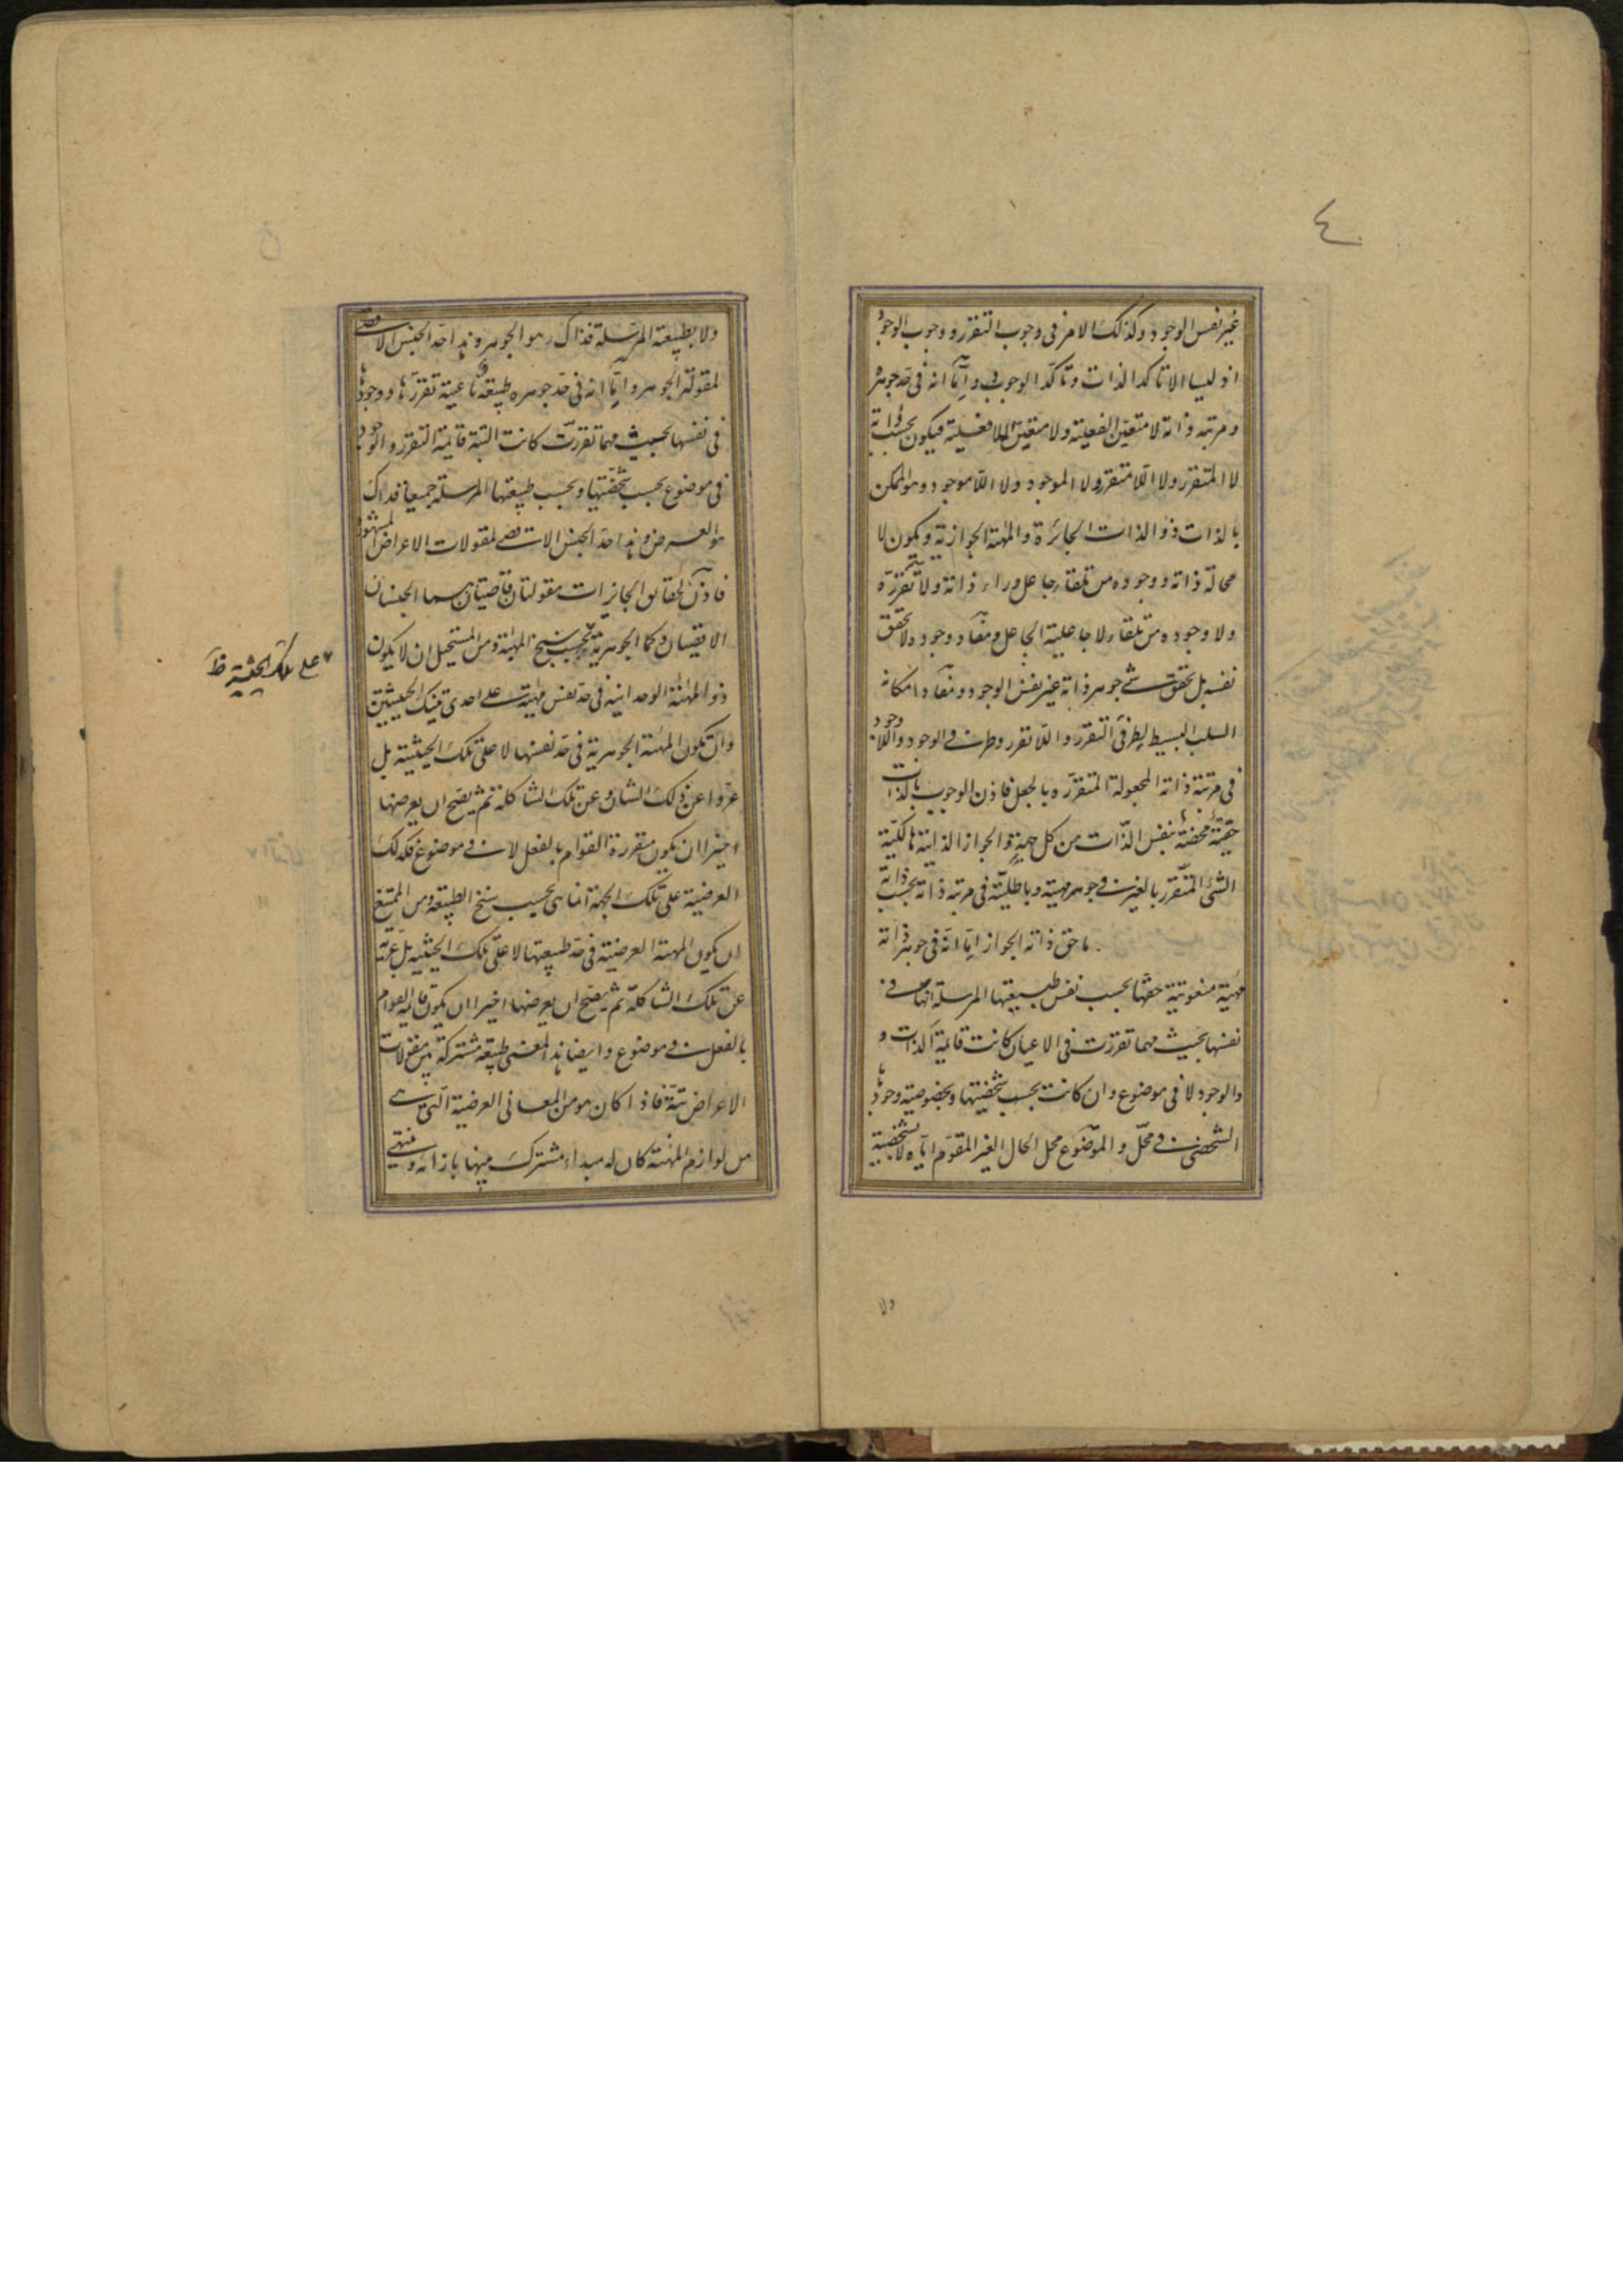 ٤
غير نفس الوجود وكذلك الامر في وجوب التقرر ووجوب الوجود
اذ ليسا الا تاكد الذات وتاكد الوجوب واما انه في حد جوهره
ومرتبة ذاته لا متعين الفعلية ولا متعين اللافعلية فيكون بحسب ذاته
لا المتقرر ولا اللا متقرر ولا الموجود ولا اللا موجود وهو الممكن
بالذات ذو الذات الجائزة والمهية الجوازية ويكون لا
محالة ذاته ووجوده من تلقاء جاعل وراء ذاته ولا تقرره
ولا وجوده من تلقاء لا جاعلية الجاعل ومفاد وجود ولا تحقق
نفسه بل تحقق شئ جوهر ذاته غير نفس الوجود ومفاد امكانه
السلب البسيط لطرفي التقرر واللا تقرر وطرفي الوجود واللا وجود
في مرتبة ذاته المجعولة المتقررة بالجعل فاذن الوجوب بالذات
حقية محضة بنفس الذات من كل جهة والجواز الذاتية هالكية
الشئ المتقرر بالغير في جوهر مهيته وباطلية في مرتبة ذاته بحسب ذاته
ما حق ذاته الجواز اما انه في جوهر ذاته
مهية منعوتية حقها بحسب نفس طبيعتها المرسلة انها في
نفسها بحيث مهما تقررت في الاعيان كانت قائمة الذات و
والوجود لا في موضوع وان كانت بحسب شخصيتها وبخصوصية وجودها
الشخصي في محل والموضوع محل الحال الغير المقوم اياه لا بشخصيته
ولا
ولا بطبيعته المرسلة فذاك هو الجوهر وهذا حد الجنس الاقصى
لمقولة الجوهر واما انه في حد جوهره طبيعة ناعتية تقررها ووجودها
في نفسها بحيث مهما تقررت كانت البتة قائمة التقرر والوجود
في موضوع بحسب شخصيتها وبحسب طبيعتها المرسلة جميعا فذاك
هو العرض وهذا حد الجنس الاقصى لمقولات الاعراض المشهور
فاذن لحقائق الجائزات مقولتان قاصيتان هما الجنسان
الاقصيان وكما الجوهرية بحسب سنخ المهية ومن المستحيل ان لا يكون
ذو المهية الوحدانية في حد نفس مهيته على احدى تينك الحيثيتين
وان تكون المهية الجوهرية في حد نفسها لا على تلك الحيثية بل
عروا عن ذلك الشان وعن تلك الشاكلة ثم يصح ان يعرضها
اخيرا ان يكون متقررة القوام بالفعل لا في موضوع فكذلك
العرضية على تلك الجهة انما هي بحسب سنخ الطبيعة ومن الممتنع
ان يكون المهية العرضية في حد طبيعتها لا على تلك الحيثية بل عرية
عن تلك الشاكلة ثم يصح ان يعرضها اخيرا ان يكون قائمة القوام
بالفعل في موضوع وايضا هذا المعنى طبيعة مشتركة بين مقولات
الاعراض تتة فاذا كان هو من المعاني العرضية التي هي
من لوازم المهية كان له مبداء مشترك بينها بازائه وينتهي
على تلك الحيثية ظ